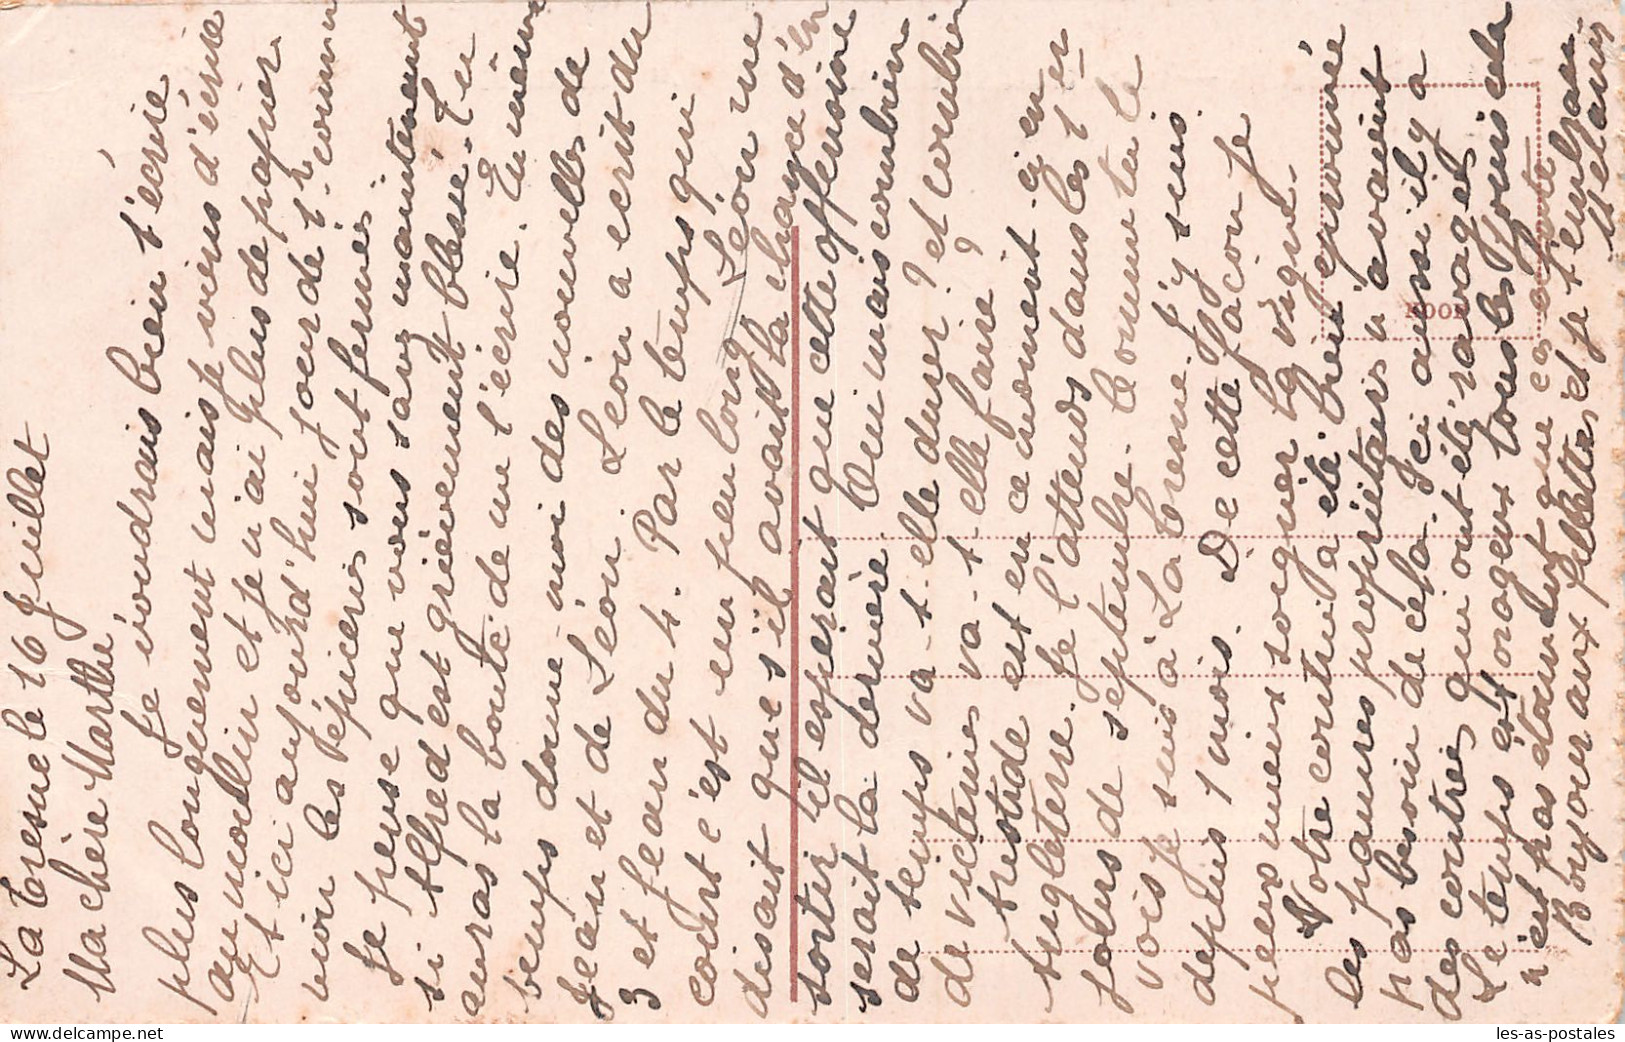 La Tresne le 16 Juillet
Ma chère Marthe
Je voudrais bien t'écrire
plus longuement mais je viens d'écrire
au moulin et je n'ai plus de papier
Et ici aujourd'hui jour de t. comme
voir les épiceries sont fermées
Je pense que vous savez maintenant
si Alfred est grièvement blessé. Tu
auras la bonté de m l'écrire. En même
temps donne-moi des nouvelles de
Jean et de Léon. Léon a écrit du
3 et Jean du 4. Par le temps qui
court c'est un peu long. Léon me
disait que s'il avait la chance d'en
sortir il espérait que cette offensive
serait la dernière. Oui mais combien
de temps va-t-elle durer? et combien
de victimes va-t-elle faire?
Aristide est en ce moment-ci en
Angleterre. Je l'attends dans les 1er
jours de septembre. Comme tu le
vois je suis à La Tresne. J'y suis
depuis 1 mois. De cette façon je
peux mieux soigner la vigne.
Votre contrée a été bien éprouvée
les pauvres propriétaires n'avaient
pas besoin de cela. Ici aussi il y a
des contrées qui ont été ravagées
Le temps est orageux tous les jours cela
n'est pas étonnant que
Bonjour aux fillettes et je t'embrasse
Melanis
KOOP
delcampe.net
les-as-postales